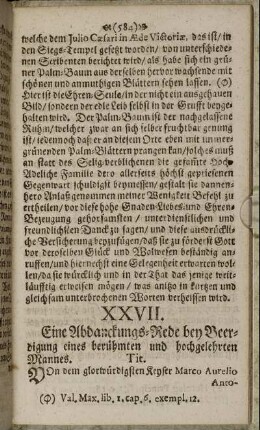 (582)
welche dem Julio Cæsari in Æde Victoriæ, das ist/ in
den Siegs-Tempel gesetzt worden/ von unterschiede-
nen Scribenten berichtet wird/ als habe sich ein grü-
ner Palm-Baum aus derselben hervor wachsende mit
schönen und anmuthigen Blättern sehen lassen. (Φ)
Hier ist die Ehren-Seule/ in der nicht ein ausgehauen
Bild/ sondern der edle Leib selbst in der Grufft beyge-
halten wird. Der Palm-Baum ist der nachgelassene
Ruhm/ welcher zwar an sich selber fruchtbar genung
ist/ jedennoch daß er an diesem Orte eben mit immer-
grünenden Palm-Blättern prangen kan/ solches muß
an statt des Selig-verblichenen die gesamte Hoch-
Adeliche Familie dero allerseits höchst gepriesenen
Gegenwart schuldigst beymessen/ gestalt sie dannen-
hero Anlaß genommen meiner Wenigkeit Befehl zu
ertheilen/ vor diese hohe Gnaden-Liebes-und Ehren-
Bezeugung gehorsamsten/ unterdienstlichen und
freundlichsten Danck zu sagen/ und diese ausdrückli-
che Versicherung beyzufügen/ daß sie zu förderst Gott
vor deroselben Glück und Wolwesen beständig an-
ruffen/ und hiernechst eine Gelegenheit erwarten wol-
len/ da sie würcklich und in der That das jenige weit-
läuftig erweisen mögen/ was anitzo in kurtzen und
gleichsam unterbrochenen Worten verheissen wird.
XXVII.
Eine Abdanckungs-Rede bey Beer-
digung eines berühmten und hochgelehrten
Mannes. Tit.
VOn dem glorwürdigsten Keyser Marco Aurelio
Anto-
(Φ) Val. Max. lib. 1. cap. 6. exempl. 12.